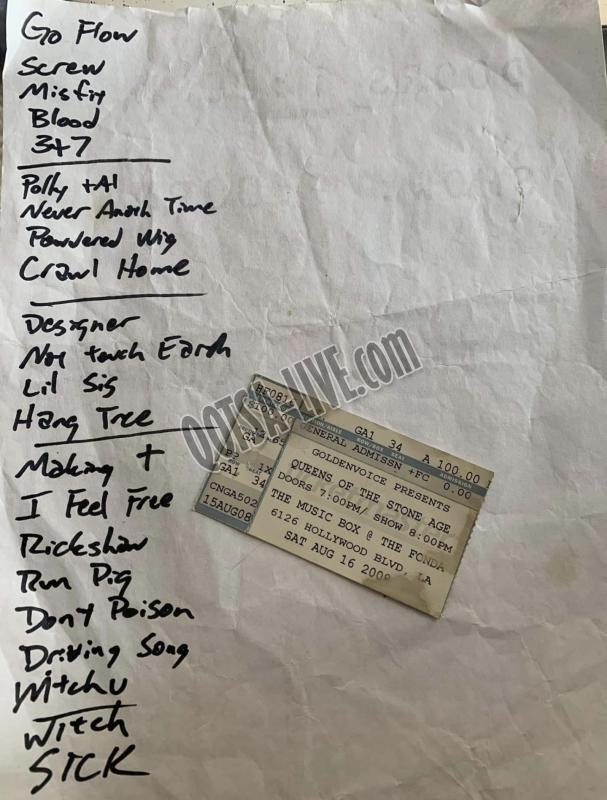 Go Flow
Screw
Misfit
Blood
3+7
Polly + Al
Never Anoth Time
Powdered Wig
Crawl Home
Designer
Not touch Earth
Lil Sis
Hang Tree
Making +
I Feel Free
Rickshaw
Run Pig
Don't Poison
Driving Song
Witchu
Witch
SICK
QOTSA-LIVE.com
GA1 34 A 100.00
GENERAL ADMISSN +FC 0.00
GOLDENVOICE PRESENTS
QUEENS OF THE STONE AGE
DOORS 7:00PM/ SHOW 8:00PM
THE MUSIC BOX @ THE FONDA
6126 HOLLYWOOD BLVD, LA
SAT AUG 16 2008
$100.00
GA1 34
CNGA502
15AUG08